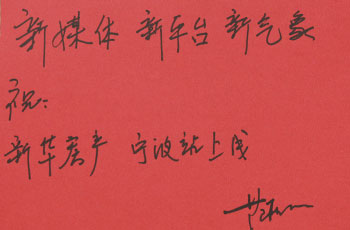 新媒体 新平台 新气象
祝:
新华房产 宁波站上线